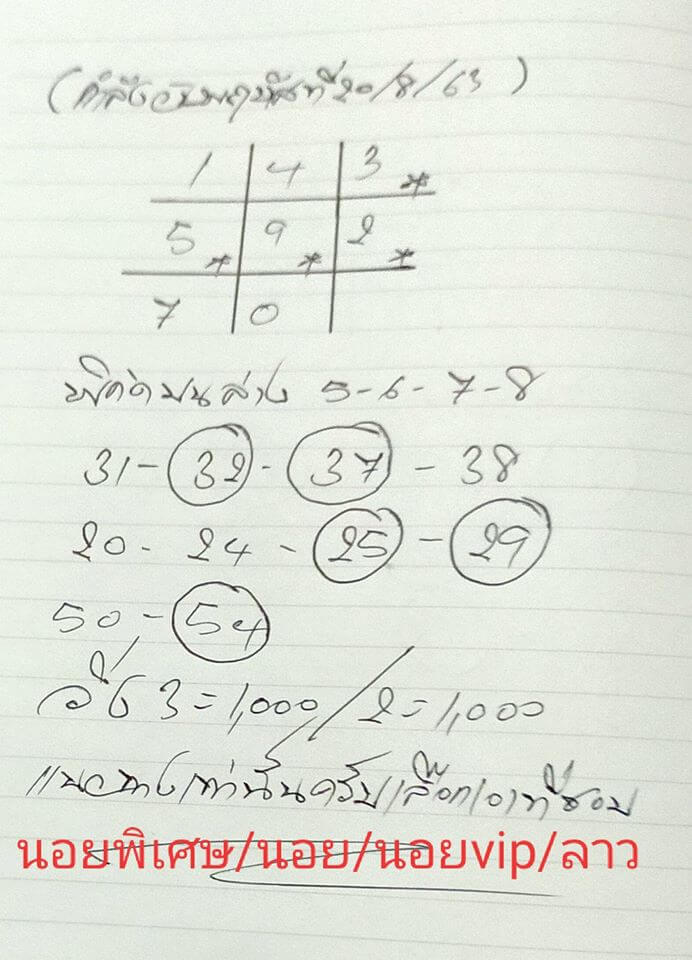 (กำลังวันพฤหัสที่ 20/8/63)
1 4 3 *
5 * 9 * 2 *
7 0
บน ล่าง 5-6-7-8
31-32-37-38
20-24-25-29
50-54
วิ่ง 3=1,000/2=1,000
แนวทางเท่านั้นครับ/เลือกเอาที่ชอบ
นอยพิเศษ/นอย/นอยvip/ลาว